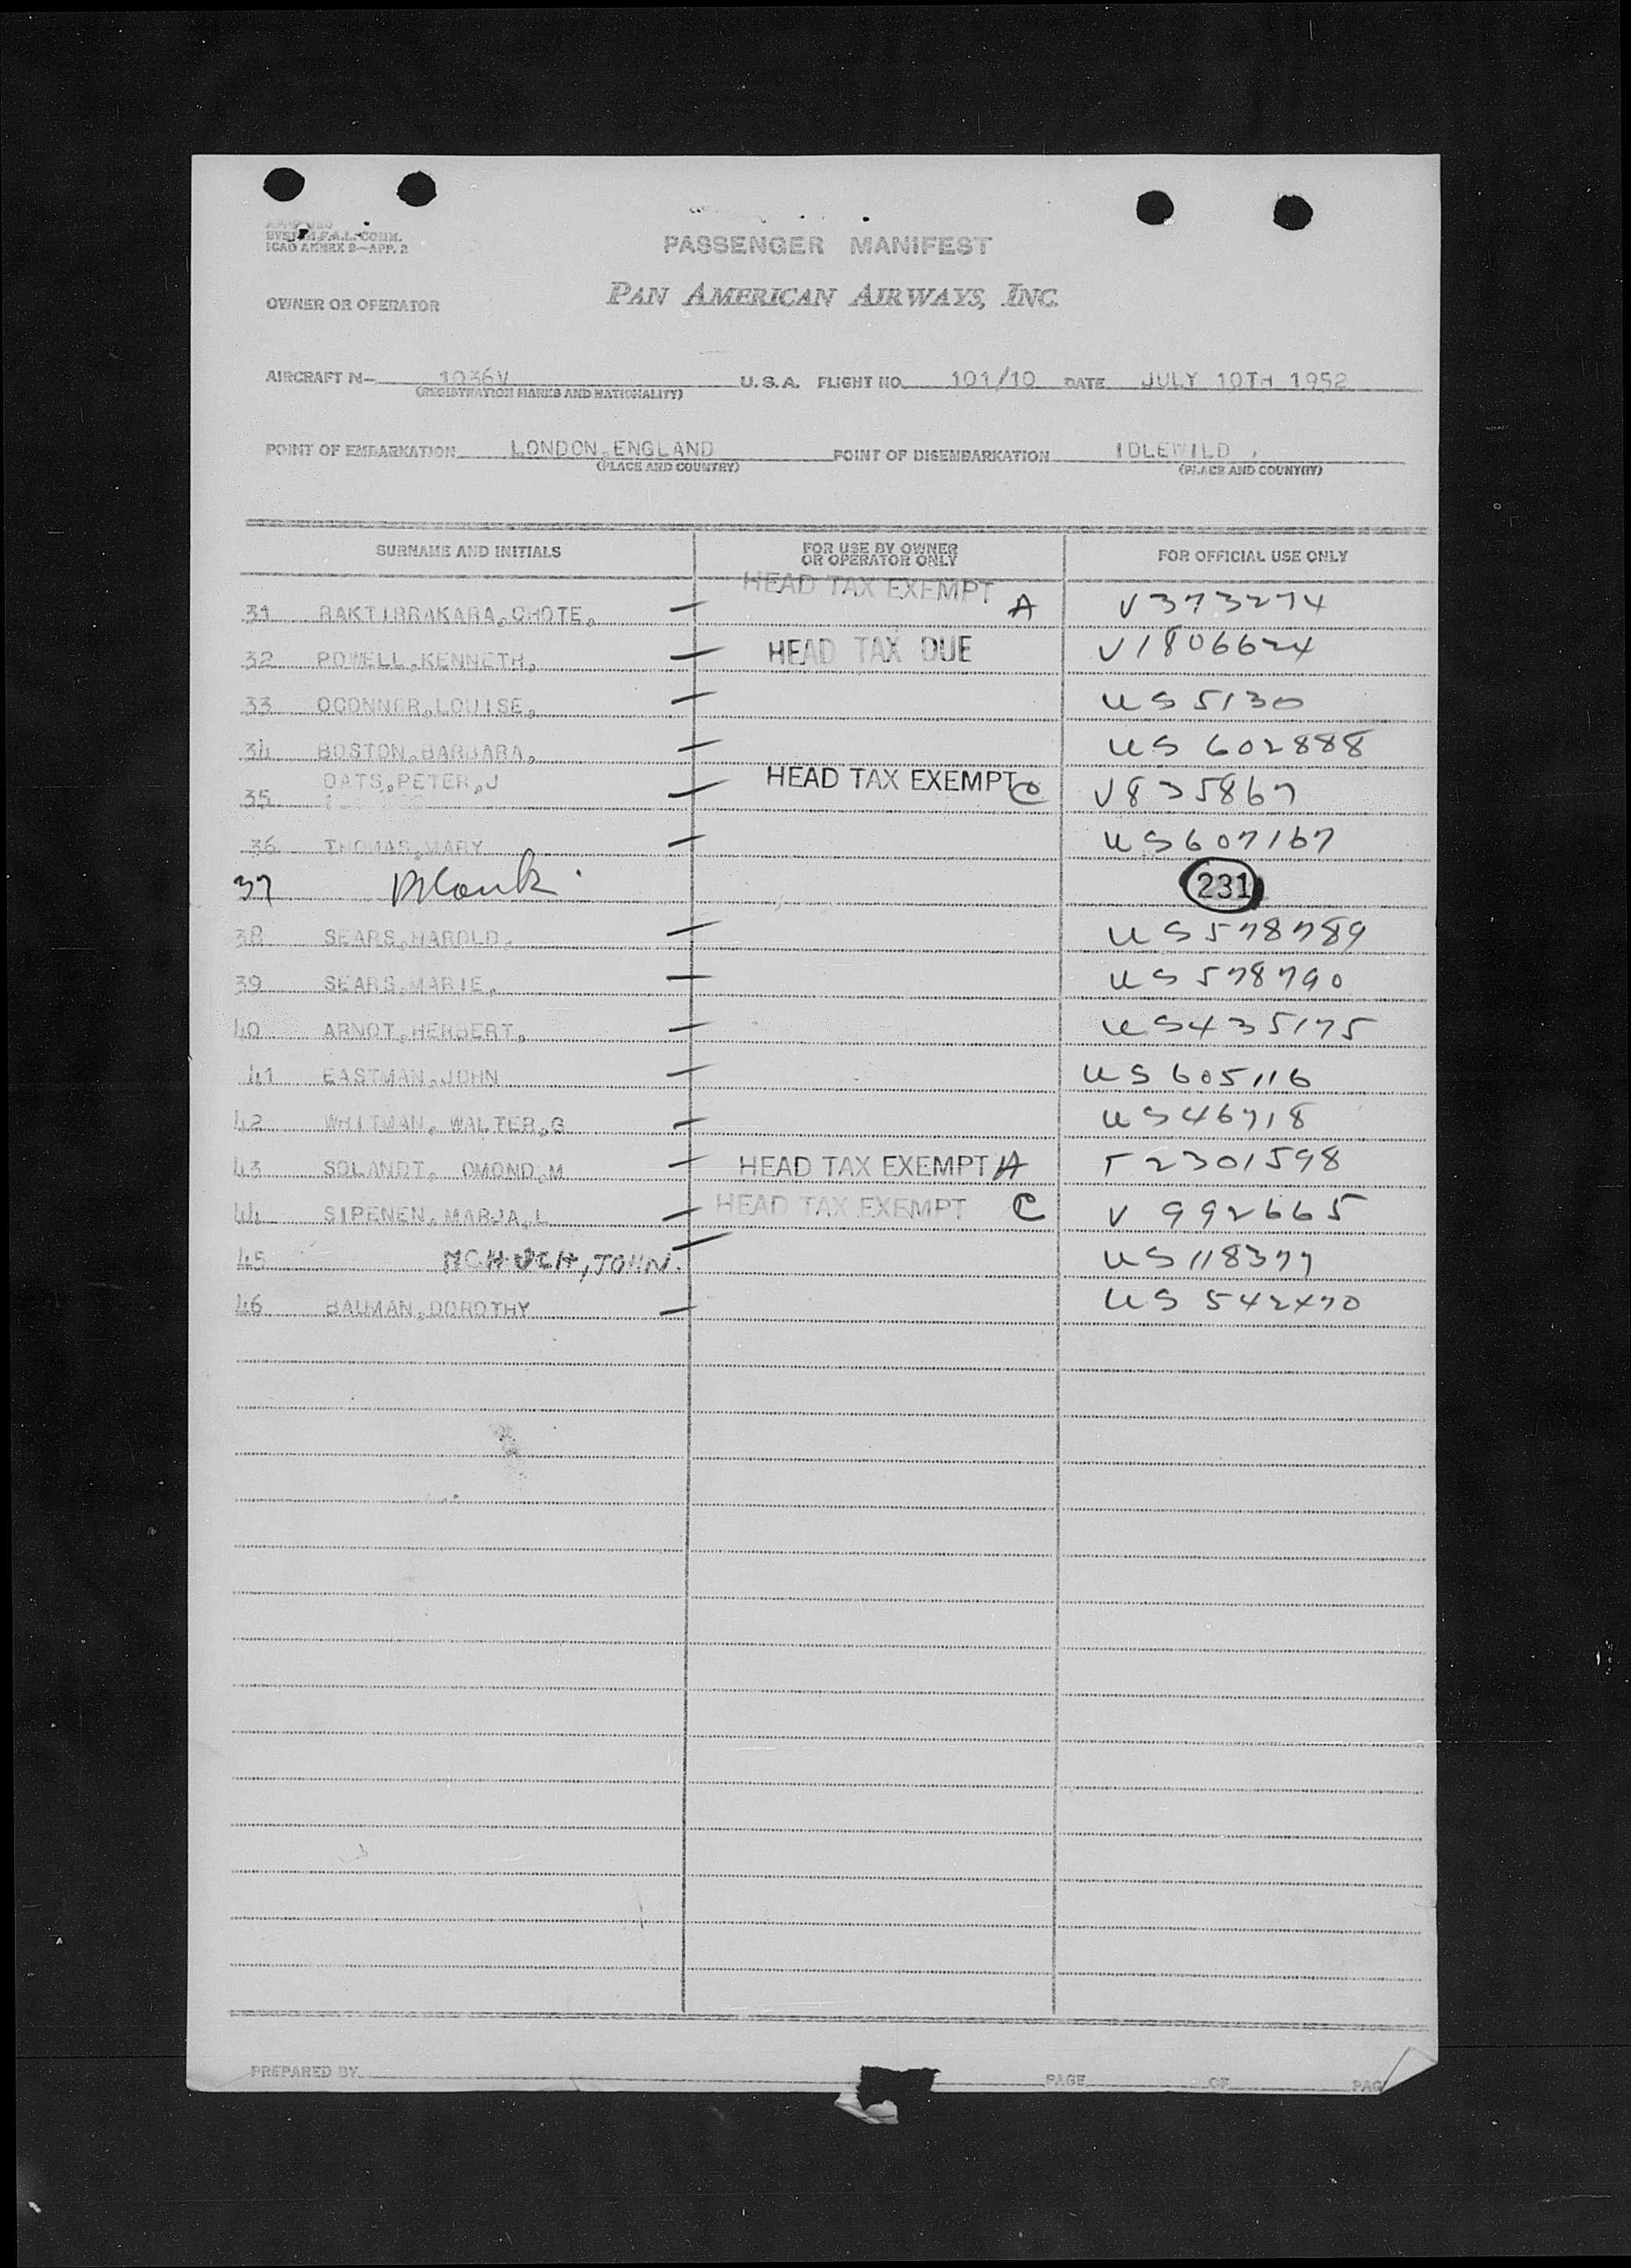 SYSTEM F.A.L. COMM.
ICAO ANNEX 9—APP. 2
PASSENGER MANIFEST
OWNER OR OPERATOR PAN AMERICAN AIRWAYS, INC.
AIRCRAFT N- 1036V U.S.A. FLIGHT NO. 101/10 DATE JULY 10TH 1952
(REGISTRATION MARKS AND NATIONALITY)
POINT OF EMBARKATION LONDON, ENGLAND POINT OF DISEMBARKATION IDLEWILD,
(PLACE AND COUNTRY) (PLACE AND COUNTRY)
SURNAME AND INITIALS FOR USE BY OWNER OR OPERATOR ONLY FOR OFFICIAL USE ONLY
31 RAKTIBRAKARA, CHOTE, — HEAD TAX EXEMPT A V373274
32 POWELL, KENNETH, — HEAD TAX DUE V1806624
33 OCONNOR, LOUISE, — US 5130
34 BOSTON, BARBARA, — US 602888
35 OATS, PETER, J — HEAD TAX EXEMPT C V835867
36 THOMAS, MARY — US607167
37 Blank. 231
38 SEARS, HAROLD, — US578789
39 SEARS, MARIE, — US578790
40 ARNOT, HERBERT, — US435175
41 EASTMAN, JOHN — US605116
42 WHITMAN, WALTER, G — US46718
43 SOLANDT, OMOND, M — HEAD TAX EXEMPT A T2301598
44 SIPENEN, MARJA, L — HEAD TAX EXEMPT C V992665
45 MCHUGH, JOHN. — US118377
46 BAUMAN, DOROTHY — US 542470
PREPARED BY PAGE OF PAG